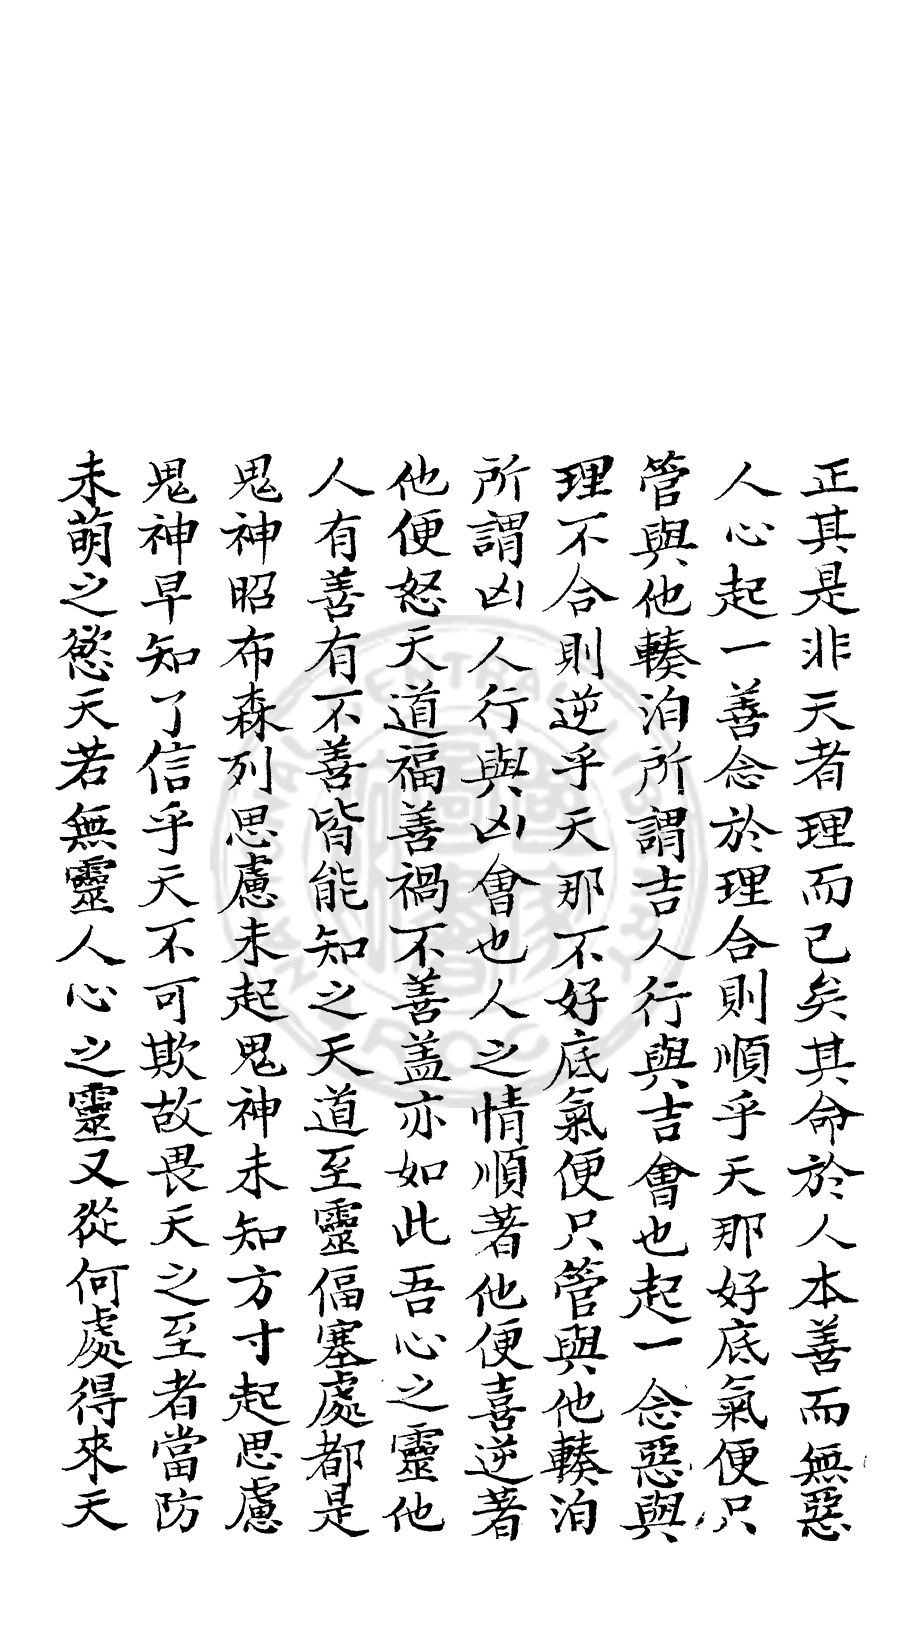 正其是非天者理而已矣其命於人本善而無惡
人心起一善念於理合則順乎天那好底氣便只
管與他輳泊所謂吉人行與吉會也起一念惡與
理不合則逆乎天那不好底氣便只管與他輳泊
所謂凶人行與凶會也人之情順著他便喜逆著
他便怒天道福善禍不善盖亦如此吾心之靈他
人有善有不善皆能知之天道至靈偪塞處都是
鬼神昭布森列思慮未起鬼神未知方寸起思慮
鬼神早知了信乎天不可欺故畏天之至者當防
未萌之慾天若無靈人心之靈又從何處得來天